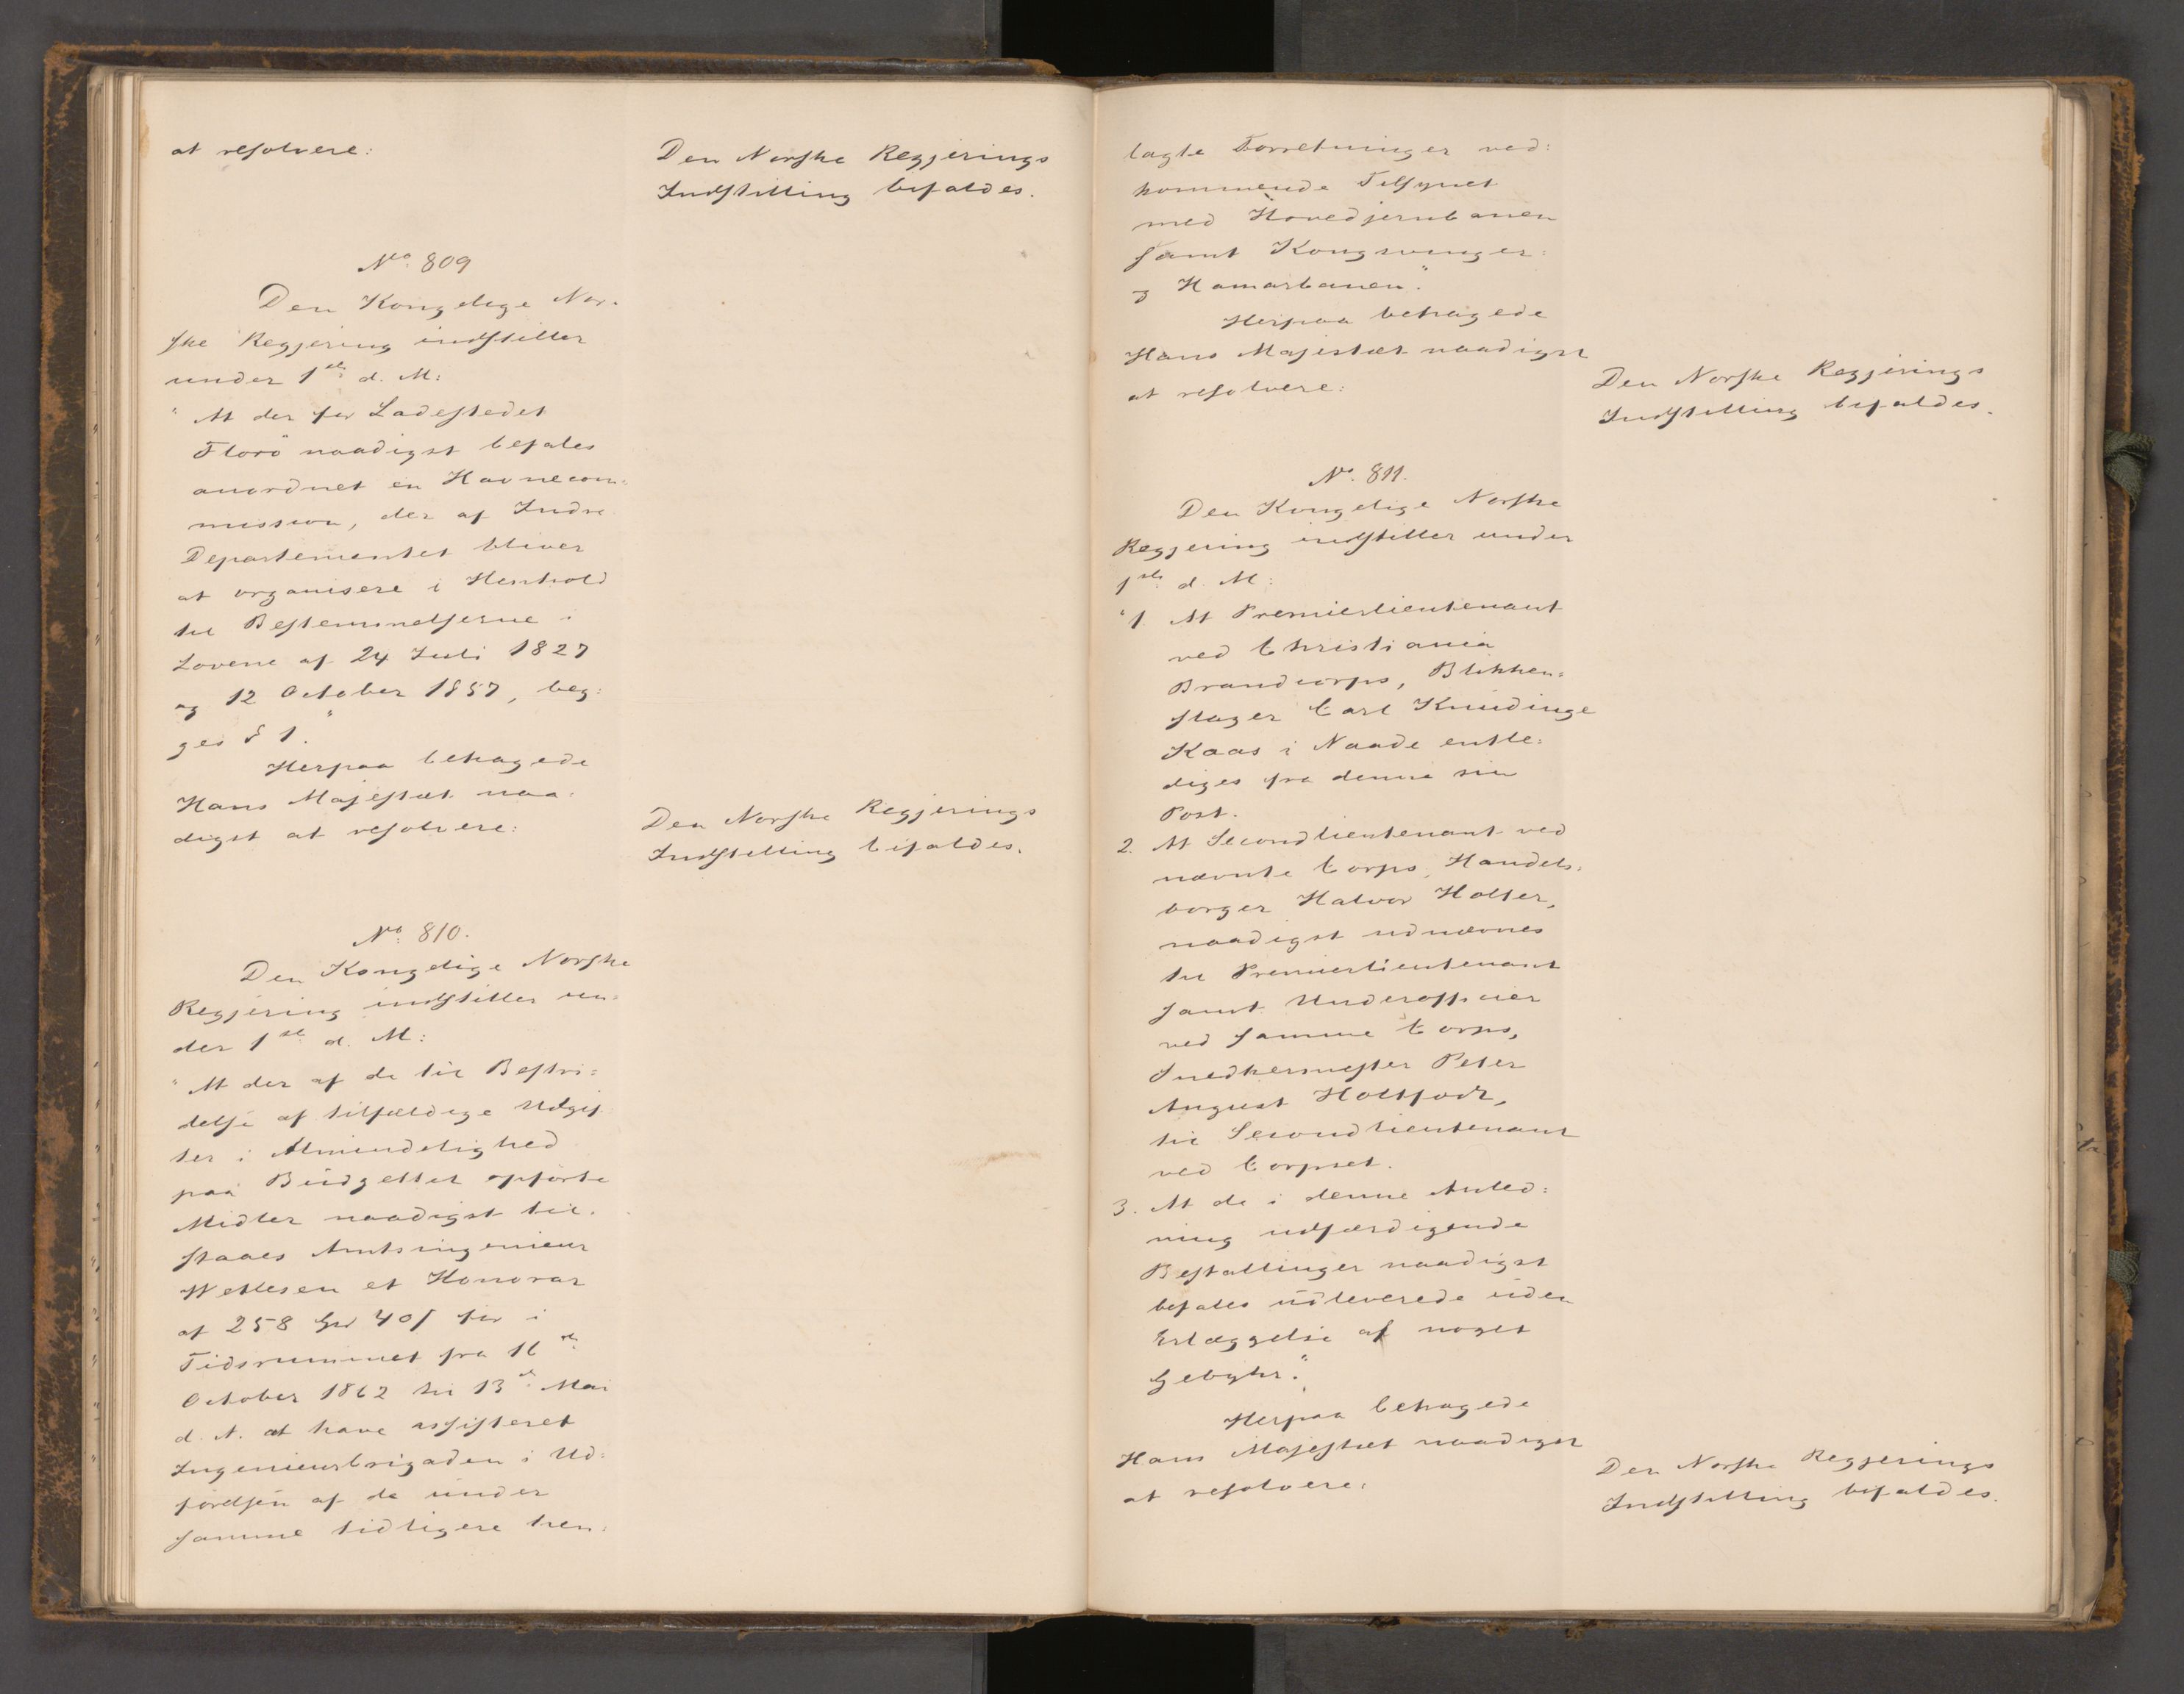 at resolvere:
Den Norske Regjerings
Indstilling bifaldes.
No. 809
Den Kongelige Nor-
ske Regjering indstiller
under 1ste d. M:
"At der for Ladestedet
Florö naadigst befales
anordnet en Havnecom-
mission, der af Indre
Departementet bliver
at organisere i Henhold
til Bestemmelserne i
Lovene af 24 Juli 1827
og 12 October 1857, beg-
ges § 1."
Herpaa behagede
Hans Majestæt naa-
digst at resolvere:
Den Norske Regjerings
Indstilling bifaldes.
No. 810.
Den Kongelige Norske
Regjering indstiller un-
der 1ste d. M:
"At der af de til Bestri-
delse af tilfældige Udgif
ter i Almindelighed
paa Budgettet opförte
Midler naadigst til-
staaes Amtsingenieur
Wetlesen et Honorar
af 258 Spd 40 s for i
Tidsrummet fra 16de
October 1862 til 13de Mai
d. A. at have assisteret
Ingenieurbrigaden i Ud-
förelsen af de under
samme tidligere hen-
lagte Forretninger ved-
kommende Tilsynet
med Hovedjernbanen
samt Kongsvinger-
og Hamarbanen".
Herpaa behagede
Hans Majestæt naadigst
at resolvere:
Den Norske Regjerings
Indstilling bifaldes.
No. 811.
Den Kongelige Norske
Regjering indstiller under
1ste d. M:
"1. At Premierlieutenant
ved Christiania
Brandcorps, Blikken-
slager Carl Knudinge
Kaas i Naade entle-
diges fra denne sin
Post.
2. At Secondlieutenant ved
nævnte Corps, Handels-
borger Halvor Holter,
naadigst udnævnes
til Premierlieutenant
samt Underofficier
ved samme Corps,
Snedkermester Peter
August Holtfodt,
til Secondlieutenant
ved Corpset.
3. At de i denne Anled-
ning udfærdigende
Bestallinger naadigst
befales udleverede uden
Erlæggelse af noget
Gebyhr."
Herpaa behagede
Hans Majestæt naadigst
at resolvere:
Den Norske Regjerings
Indstilling bifaldes.